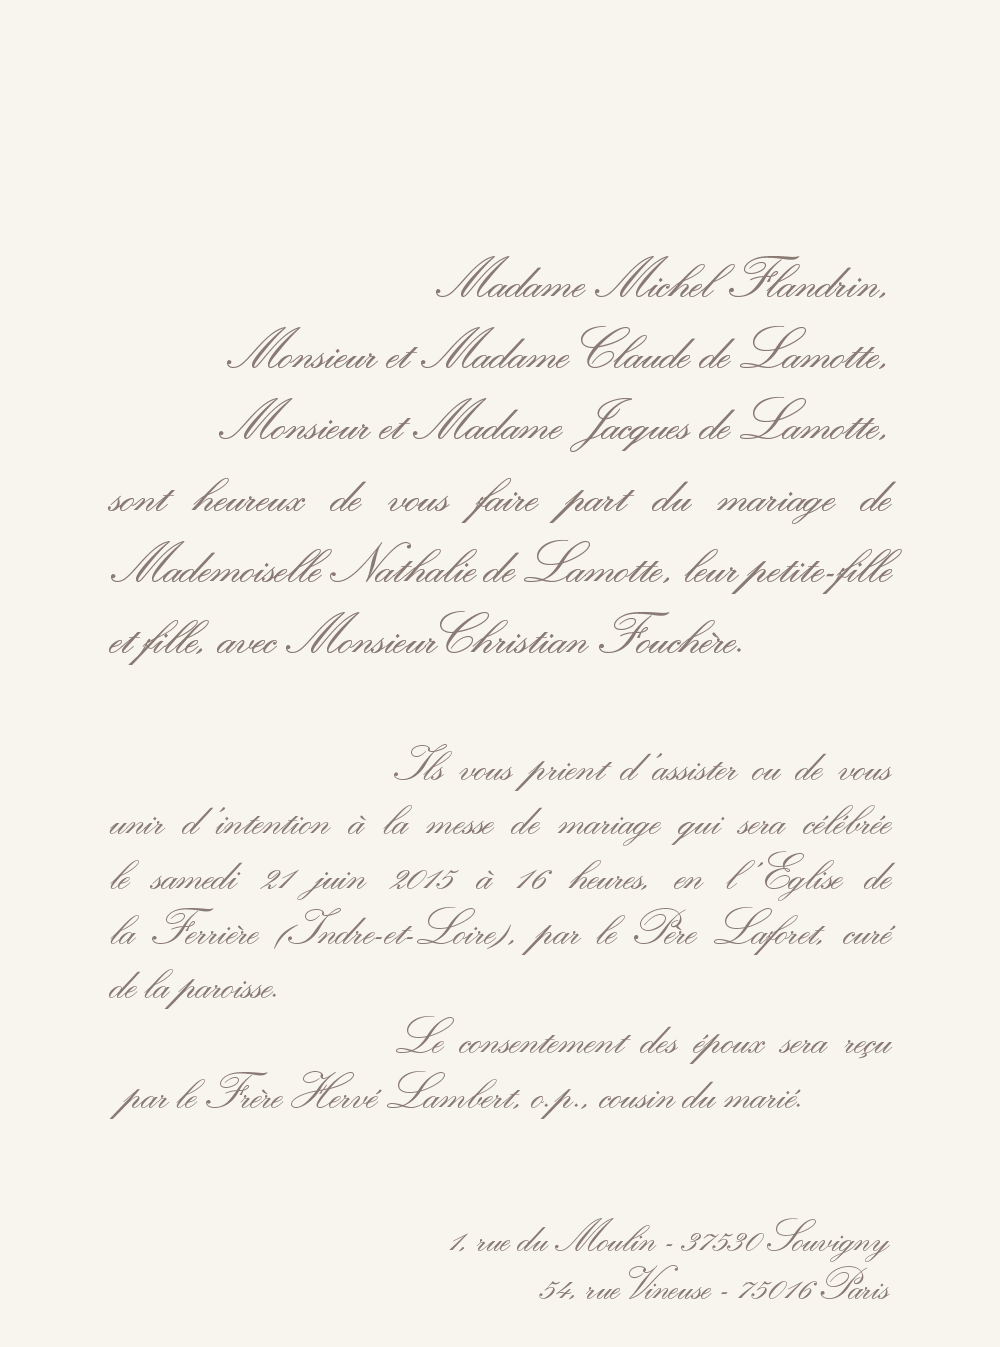 Madame Michel Flandrin,
Monsieur et Madame Claude de Lamotte,
Monsieur et Madame Jacques de Lamotte,
sont heureux de vous faire part du mariage de
Mademoiselle Nathalie de Lamotte, leur petite-fille
et fille, avec Monsieur Christian Fouchère.
Ils vous prient d'assister ou de vous
unir d'intention à la messe de mariage qui sera célébrée
le samedi 21 juin 2015 à 16 heures, en l'Eglise de
la Ferrière (Indre-et-Loire), par le Père Laforet, curé
de la paroisse.
Le consentement des époux sera reçu
par le Frère Hervé Lambert, o.p., cousin du marié.
1, rue du Moulin - 37530 Souvigny
54, rue Vineuse - 75016 Paris